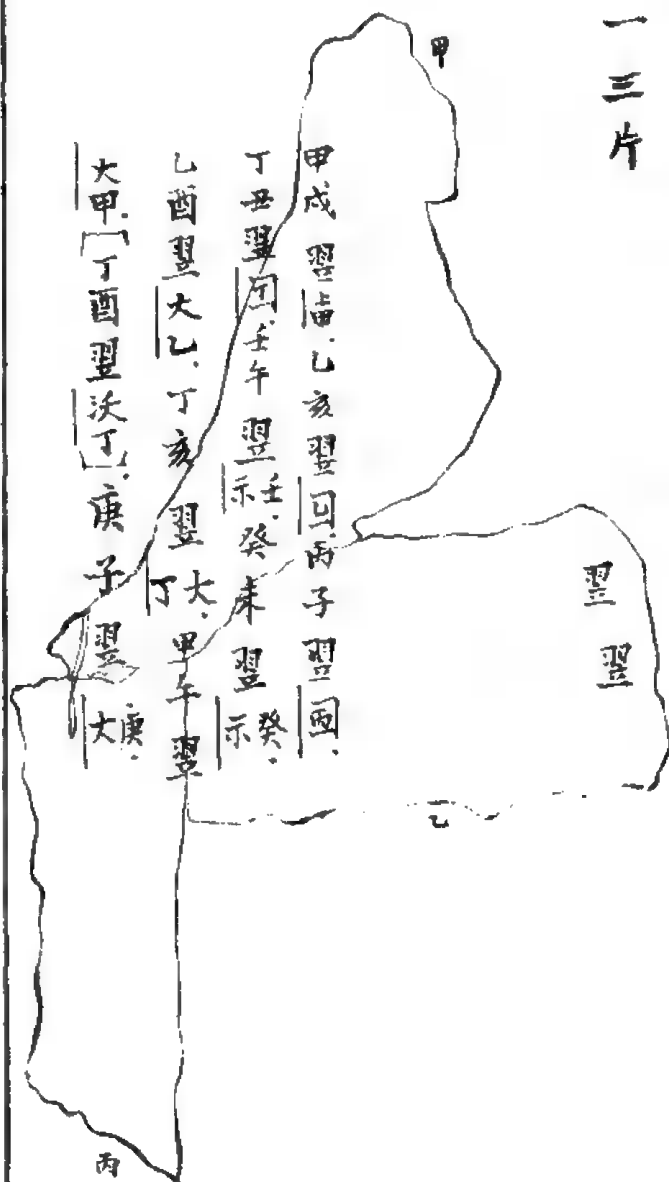 一三片
甲
翌
翌
甲戌翌、乙亥翌丙子翌.
丁丑翌壬午翌示壬.癸未翌示癸.
乙酉翌大乙.丁亥翌大丁.甲午翌
大甲.[丁酉翌沃丁].庚子翌大庚.
乙
丙